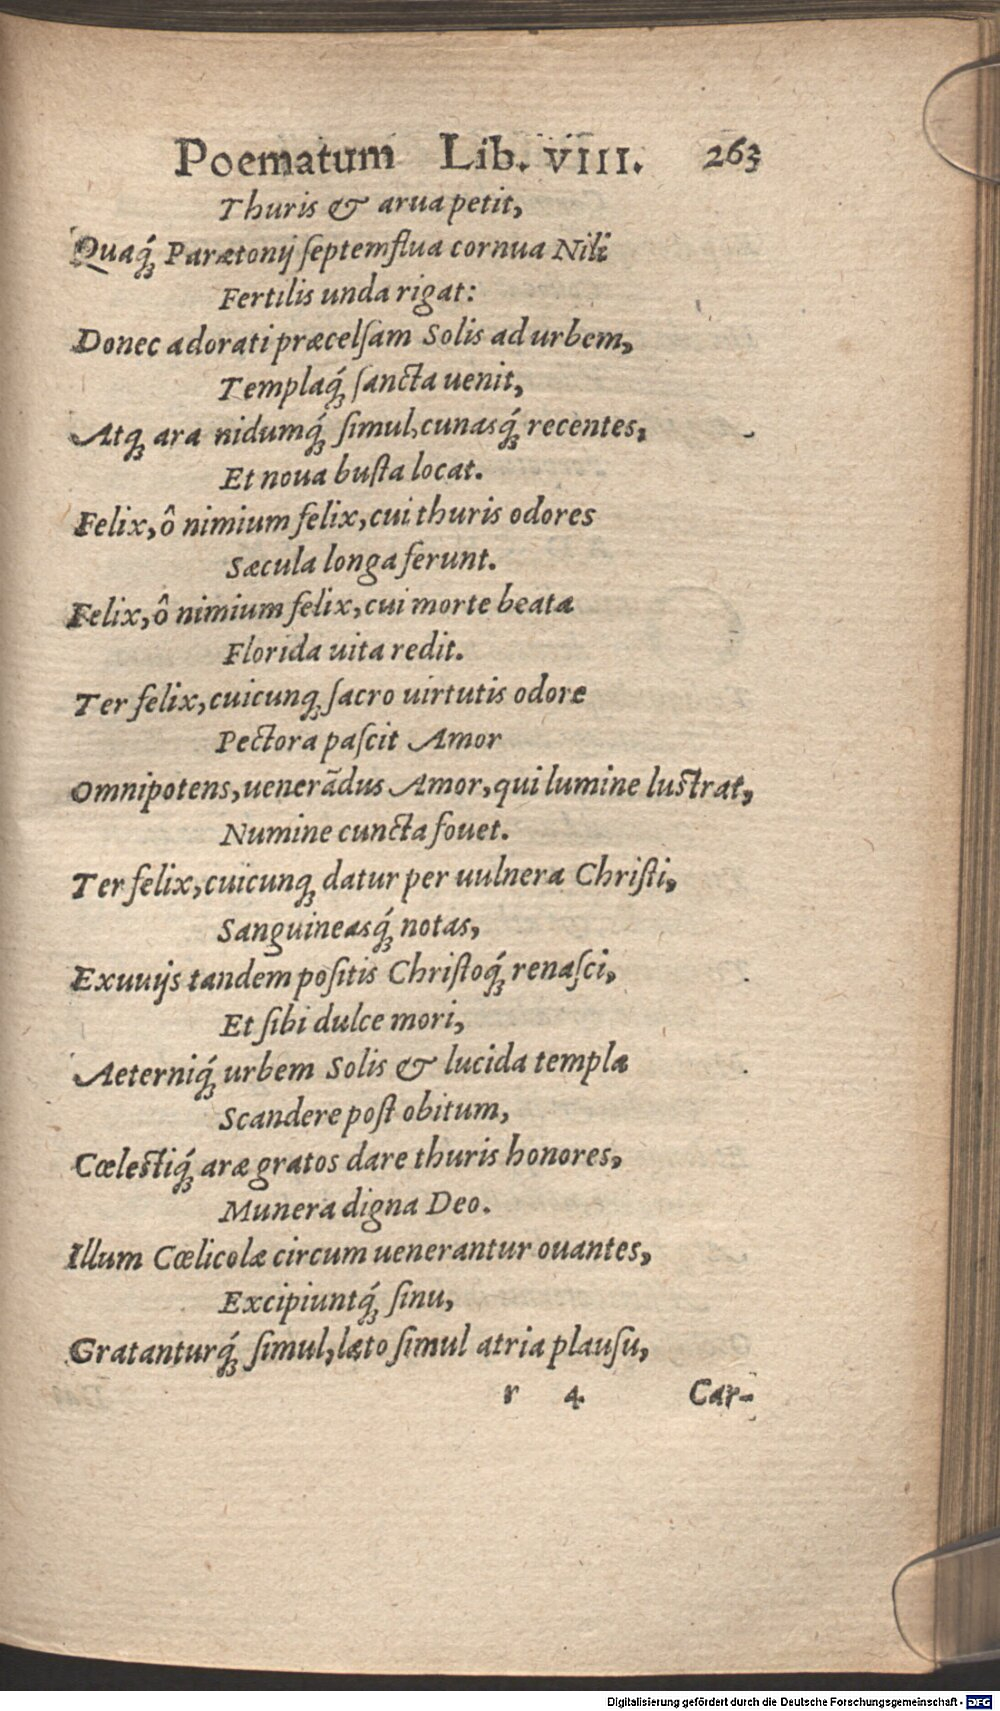 Poematum Lib. VIII. 263
Thuris & arua petit,
Quaq́; Parætonij ſeptemflua cornua Nili
Fertilis unda rigat:
Donec adorati præcelſam Solis ad urbem,
Templaq́; ſancta uenit,
Atq; ara nidumq́; ſimul, cunasq́; recentes,
Et noua buſta locat.
Felix, ô nimium felix, cui thuris odores
Sæcula longa ferunt.
Felix, ô nimium felix, cui morte beata
Florida uita redit.
Ter felix, cuicunq; ſacro uirtutis odore
Pectora paſcit Amor
Omnipotens, uenerãdus Amor, qui lumine luſtrat,
Numine cuncta fouet.
Ter felix, cuicunq; datur per uulnera Chriſti,
Sanguineasq́; notas,
Exuuijs tandem poſitis Chriſtoq́; renaſci,
Et ſibi dulce mori,
Aeterniq́; urbem Solis & lucida templa
Scandere poſt obitum,
Cœleſtiq́; aræ gratos dare thuris honores,
Munera digna Deo.
Illum Cœlicolæ circum uenerantur ouantes,
Excipiuntq́; ſinu,
Gratanturq́; ſimul, læto ſimul atria plauſu,
r 4 Car-
Digitalisierung gefördert durch die Deutsche Forschungsgemeinschaft - DFG